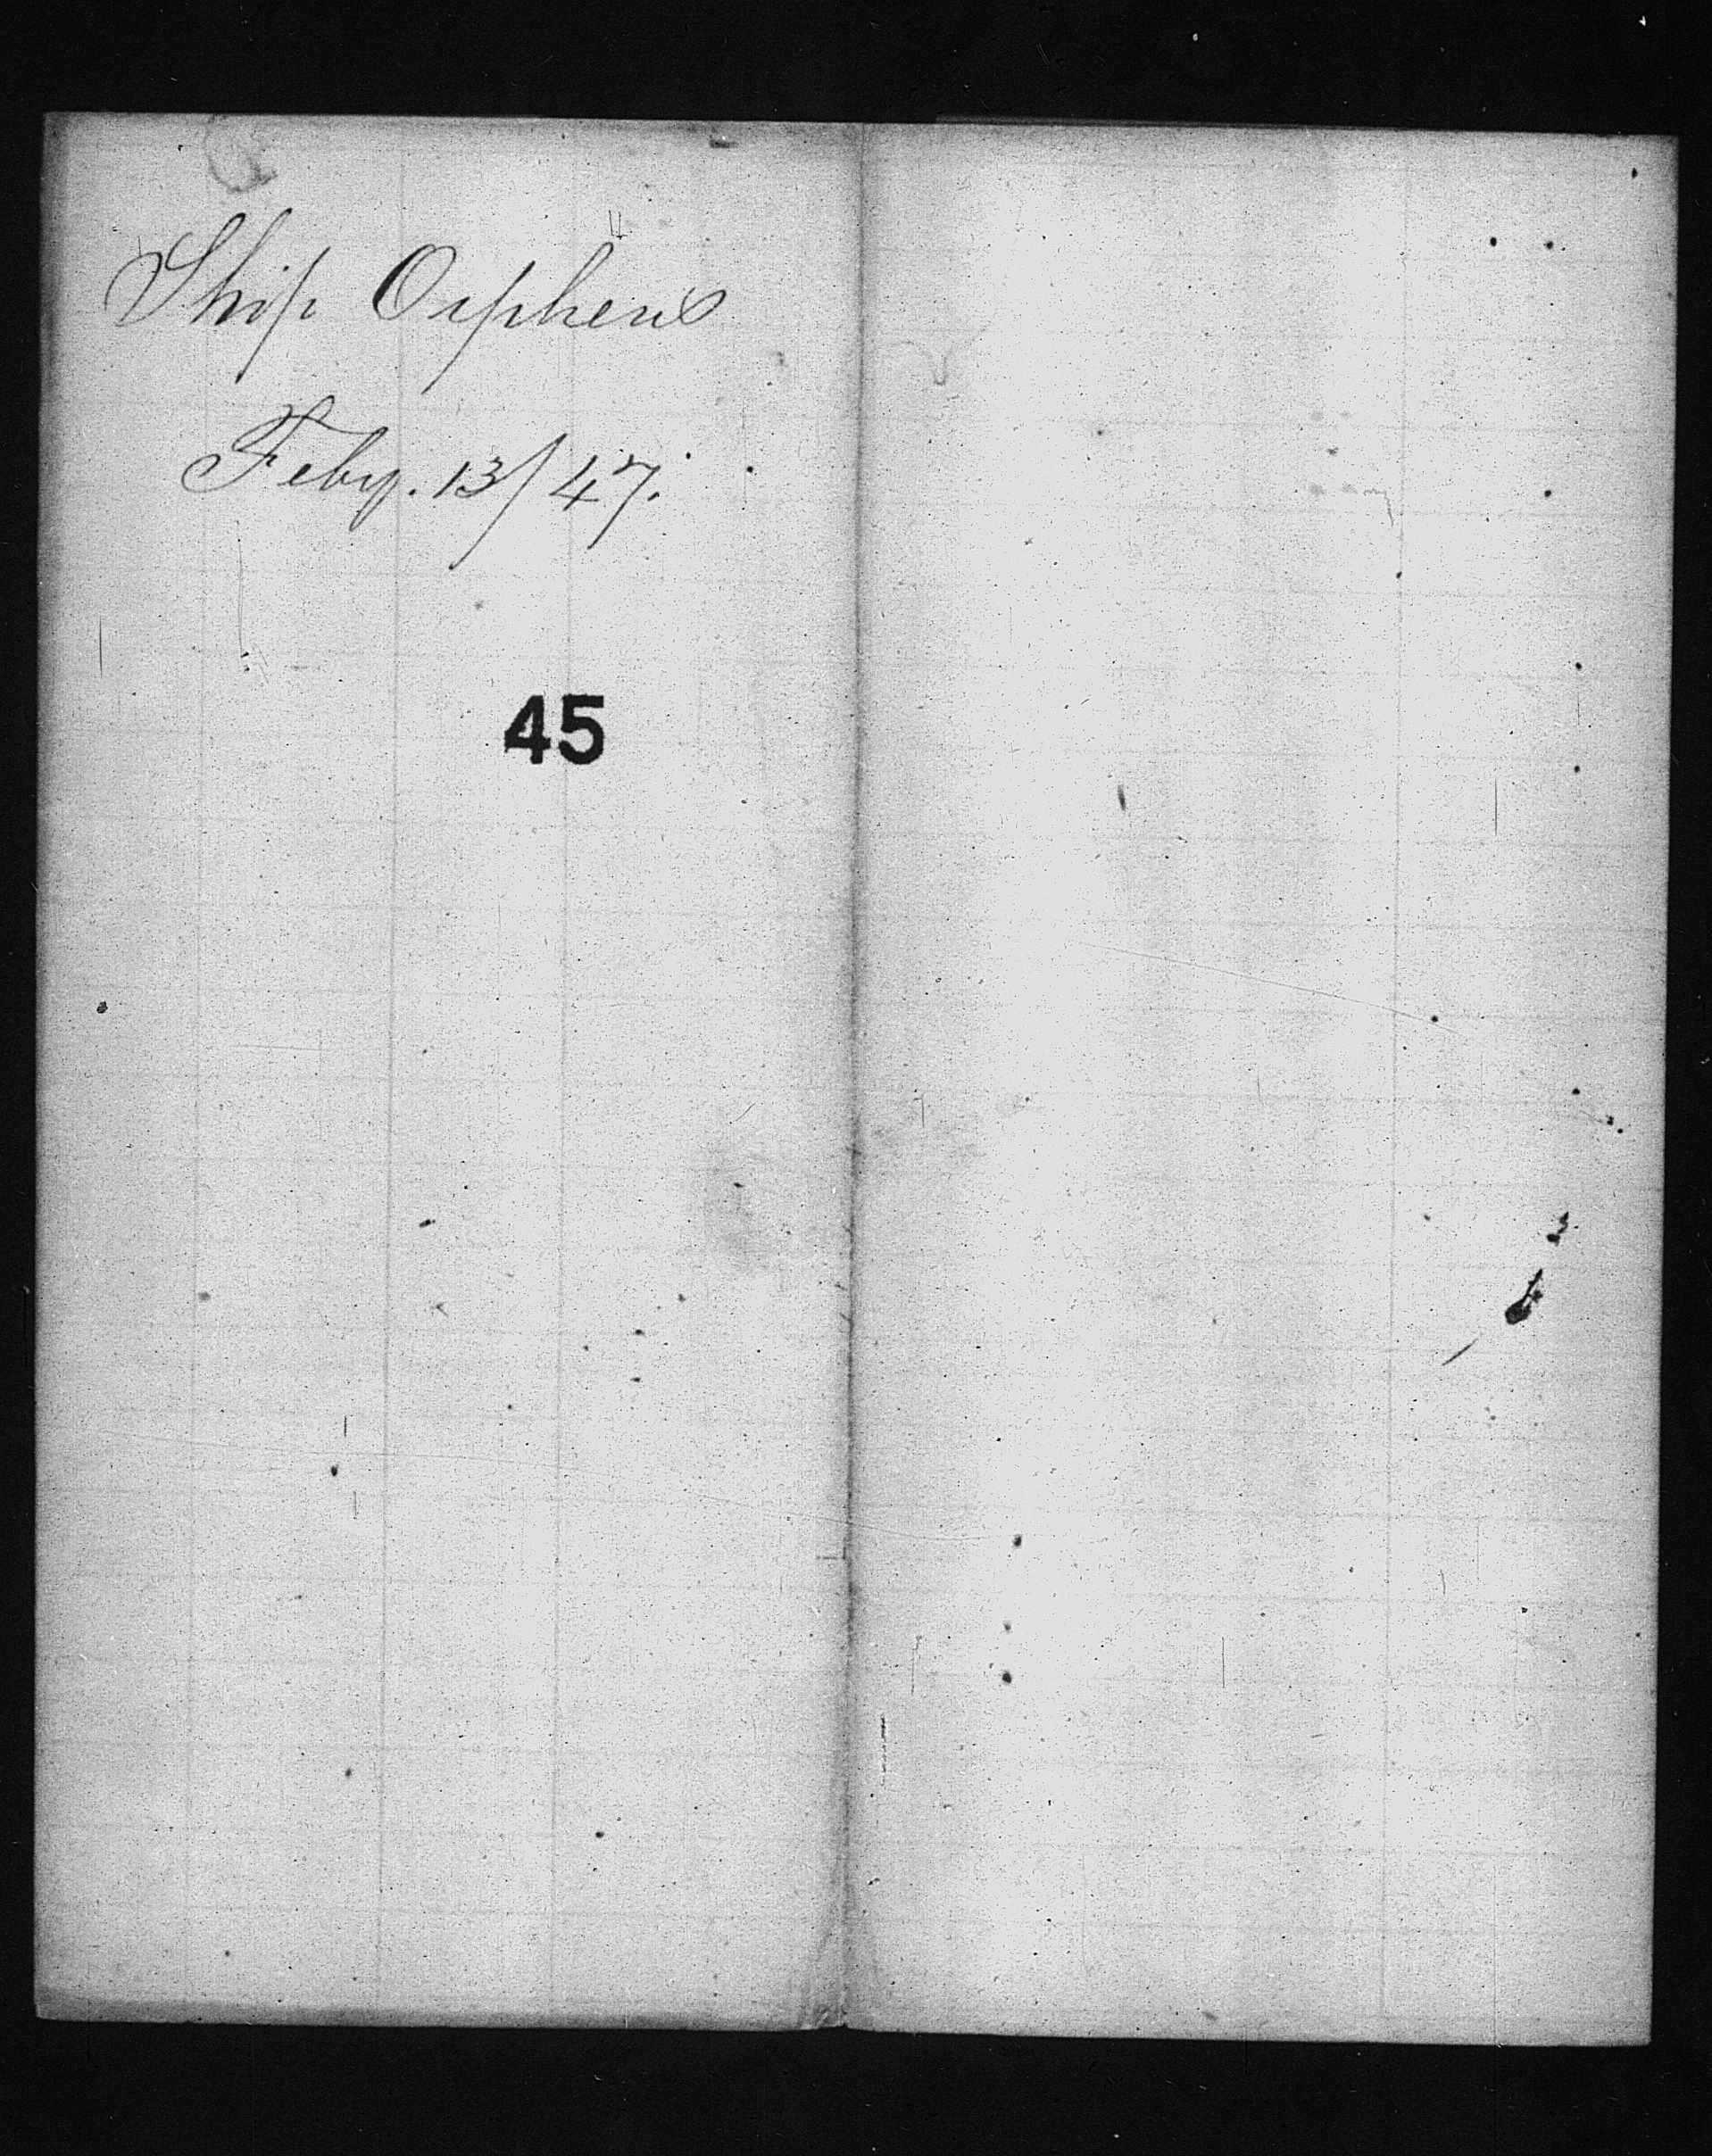 Ship Orpheus
Feby. 13/47.
45